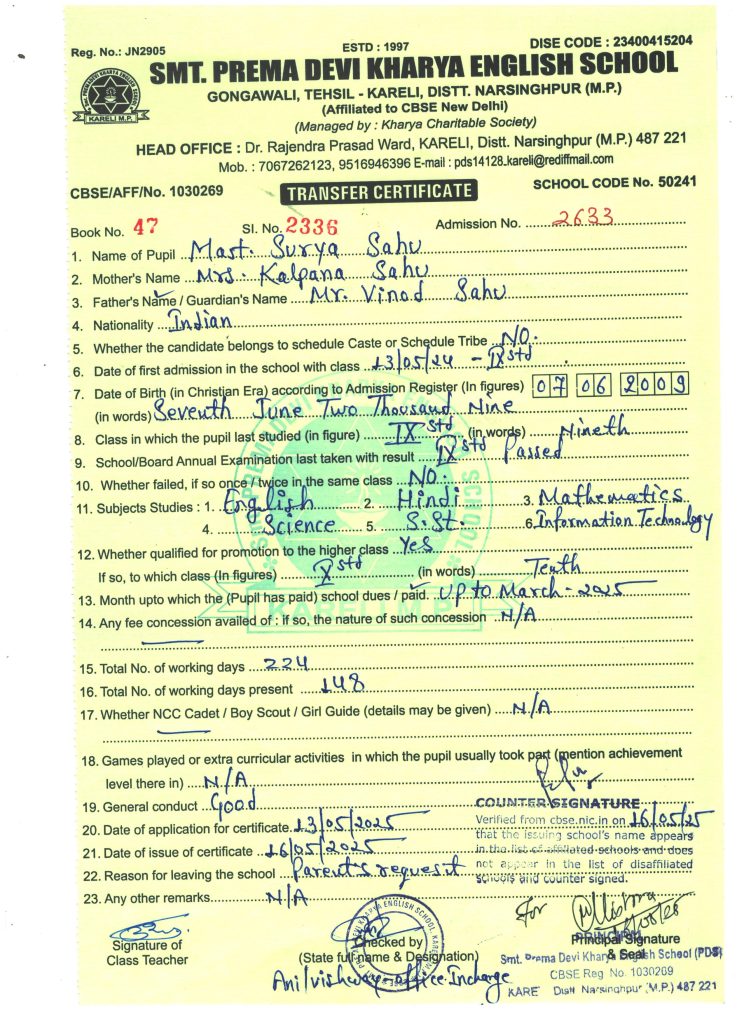 Reg. No.: JN2905
ESTD : 1997
DISE CODE : 23400415204
SMT. PREMA DEVI KHARYA ENGLISH SCHOOL
GONGAWALI, TEHSIL - KARELI, DISTT. NARSINGHPUR (M.P.)
(Affiliated to CBSE New Delhi)
(Managed by : Kharya Charitable Society)
KARELI M.P.
HEAD OFFICE : Dr. Rajendra Prasad Ward, KARELI, Distt. Narsinghpur (M.P.) 487 221
Mob. : 7067262123, 9516946396 E-mail : pds14128.kareli@rediffmail.com
CBSE/AFF/No. 1030269
TRANSFER CERTIFICATE
SCHOOL CODE No. 50241
Book No. 47 Sl. No. 2336 Admission No. 2633
1. Name of Pupil Mast. Surya Sahu
2. Mother's Name Mrs. Kalpana Sahu
3. Father's Name / Guardian's Name Mr. Vinod Sahu
4. Nationality Indian
5. Whether the candidate belongs to schedule Caste or Schedule Tribe NO.
6. Date of first admission in the school with class 13/05/24 - IX std
7. Date of Birth (in Christian Era) according to Admission Register (In figures) 07 06 2009
(in words) Seventh June Two Thousand Nine
8. Class in which the pupil last studied (in figure) IX std (in words) Nineth
9. School/Board Annual Examination last taken with result IX std Passed
10. Whether failed, if so once / twice in the same class NO.
11. Subjects Studies : 1. English 2. Hindi 3. Mathematics
4. Science 5. S.St. 6. Information Technology
12. Whether qualified for promotion to the higher class Yes
If so, to which class (In figures) X std (in words) Tenth
13. Month upto which the (Pupil has paid) school dues / paid. Up to March-2025
14. Any fee concession availed of : if so, the nature of such concession N/A
15. Total No. of working days 224
16. Total No. of working days present 148
17. Whether NCC Cadet / Boy Scout / Girl Guide (details may be given) N/A
18. Games played or extra curricular activities in which the pupil usually took part (mention achievement
level there in) N/A
19. General conduct Good
COUNTER SIGNATURE
Verified from cbse.nic.in on 16/05/25
that the issuing school's name appears
in the list of affiliated schools and does
not appear in the list of disaffiliated
schools and counter signed.
20. Date of application for certificate 13/05/2025
21. Date of issue of certificate 16/05/2025
22. Reason for leaving the school Parent's request
23. Any other remarks N/A
For
Signature of
Class Teacher
Checked by
(State full name & Designation)
Anil vishway - office Incharge
PRINCIPAL
Principal Signature
& Seal
Smt. Prema Devi Kharya English School (PDS)
CBSE Reg No. 1030269
KARE Distt Narsinghpur (M.P.) 487 221